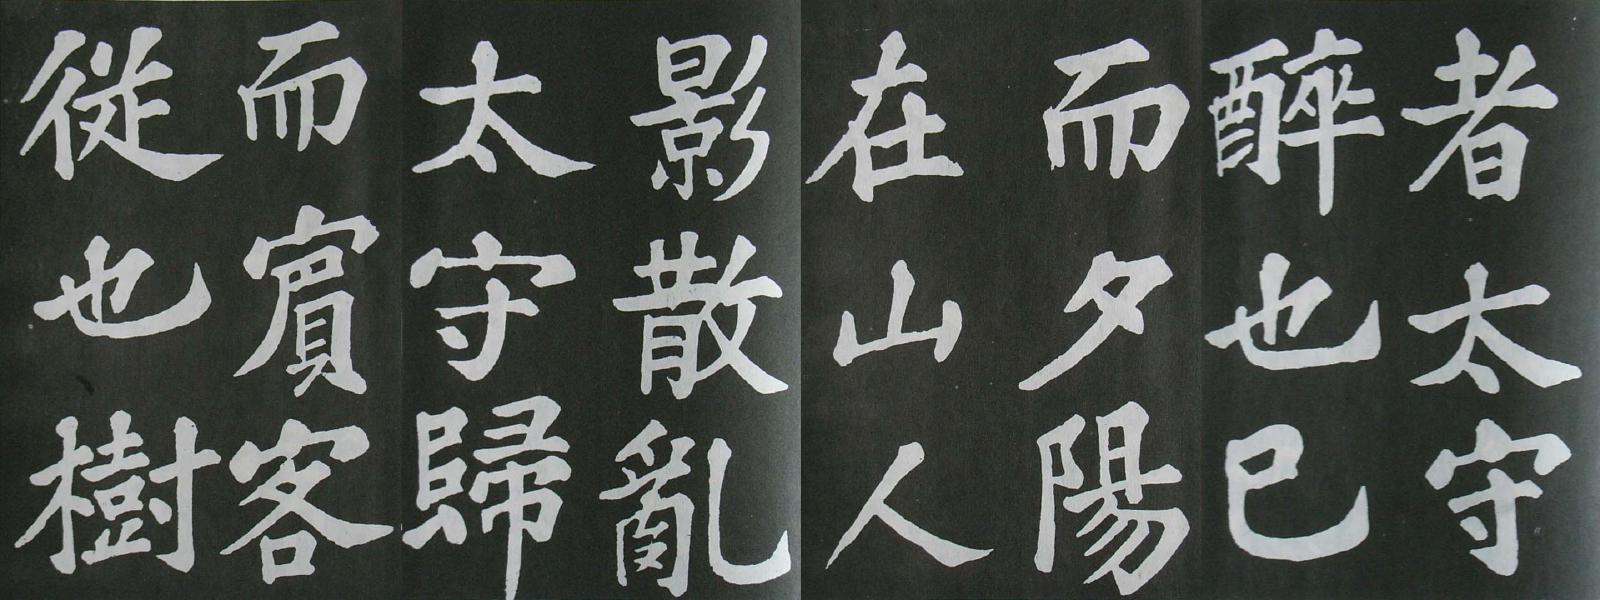 者太守
醉也已
而夕陽
在山人
影散亂
太守歸
而賔客
從也樹